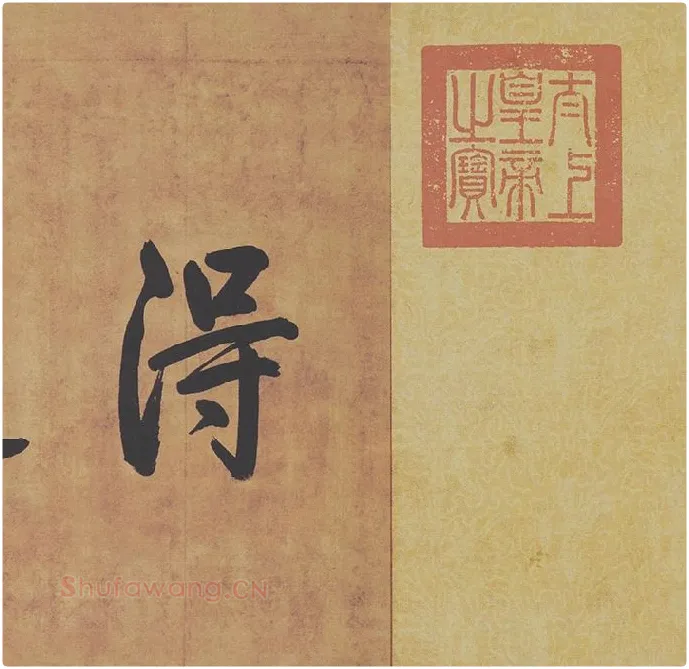 太上
皇帝
之寶
得
Shufawang.CN